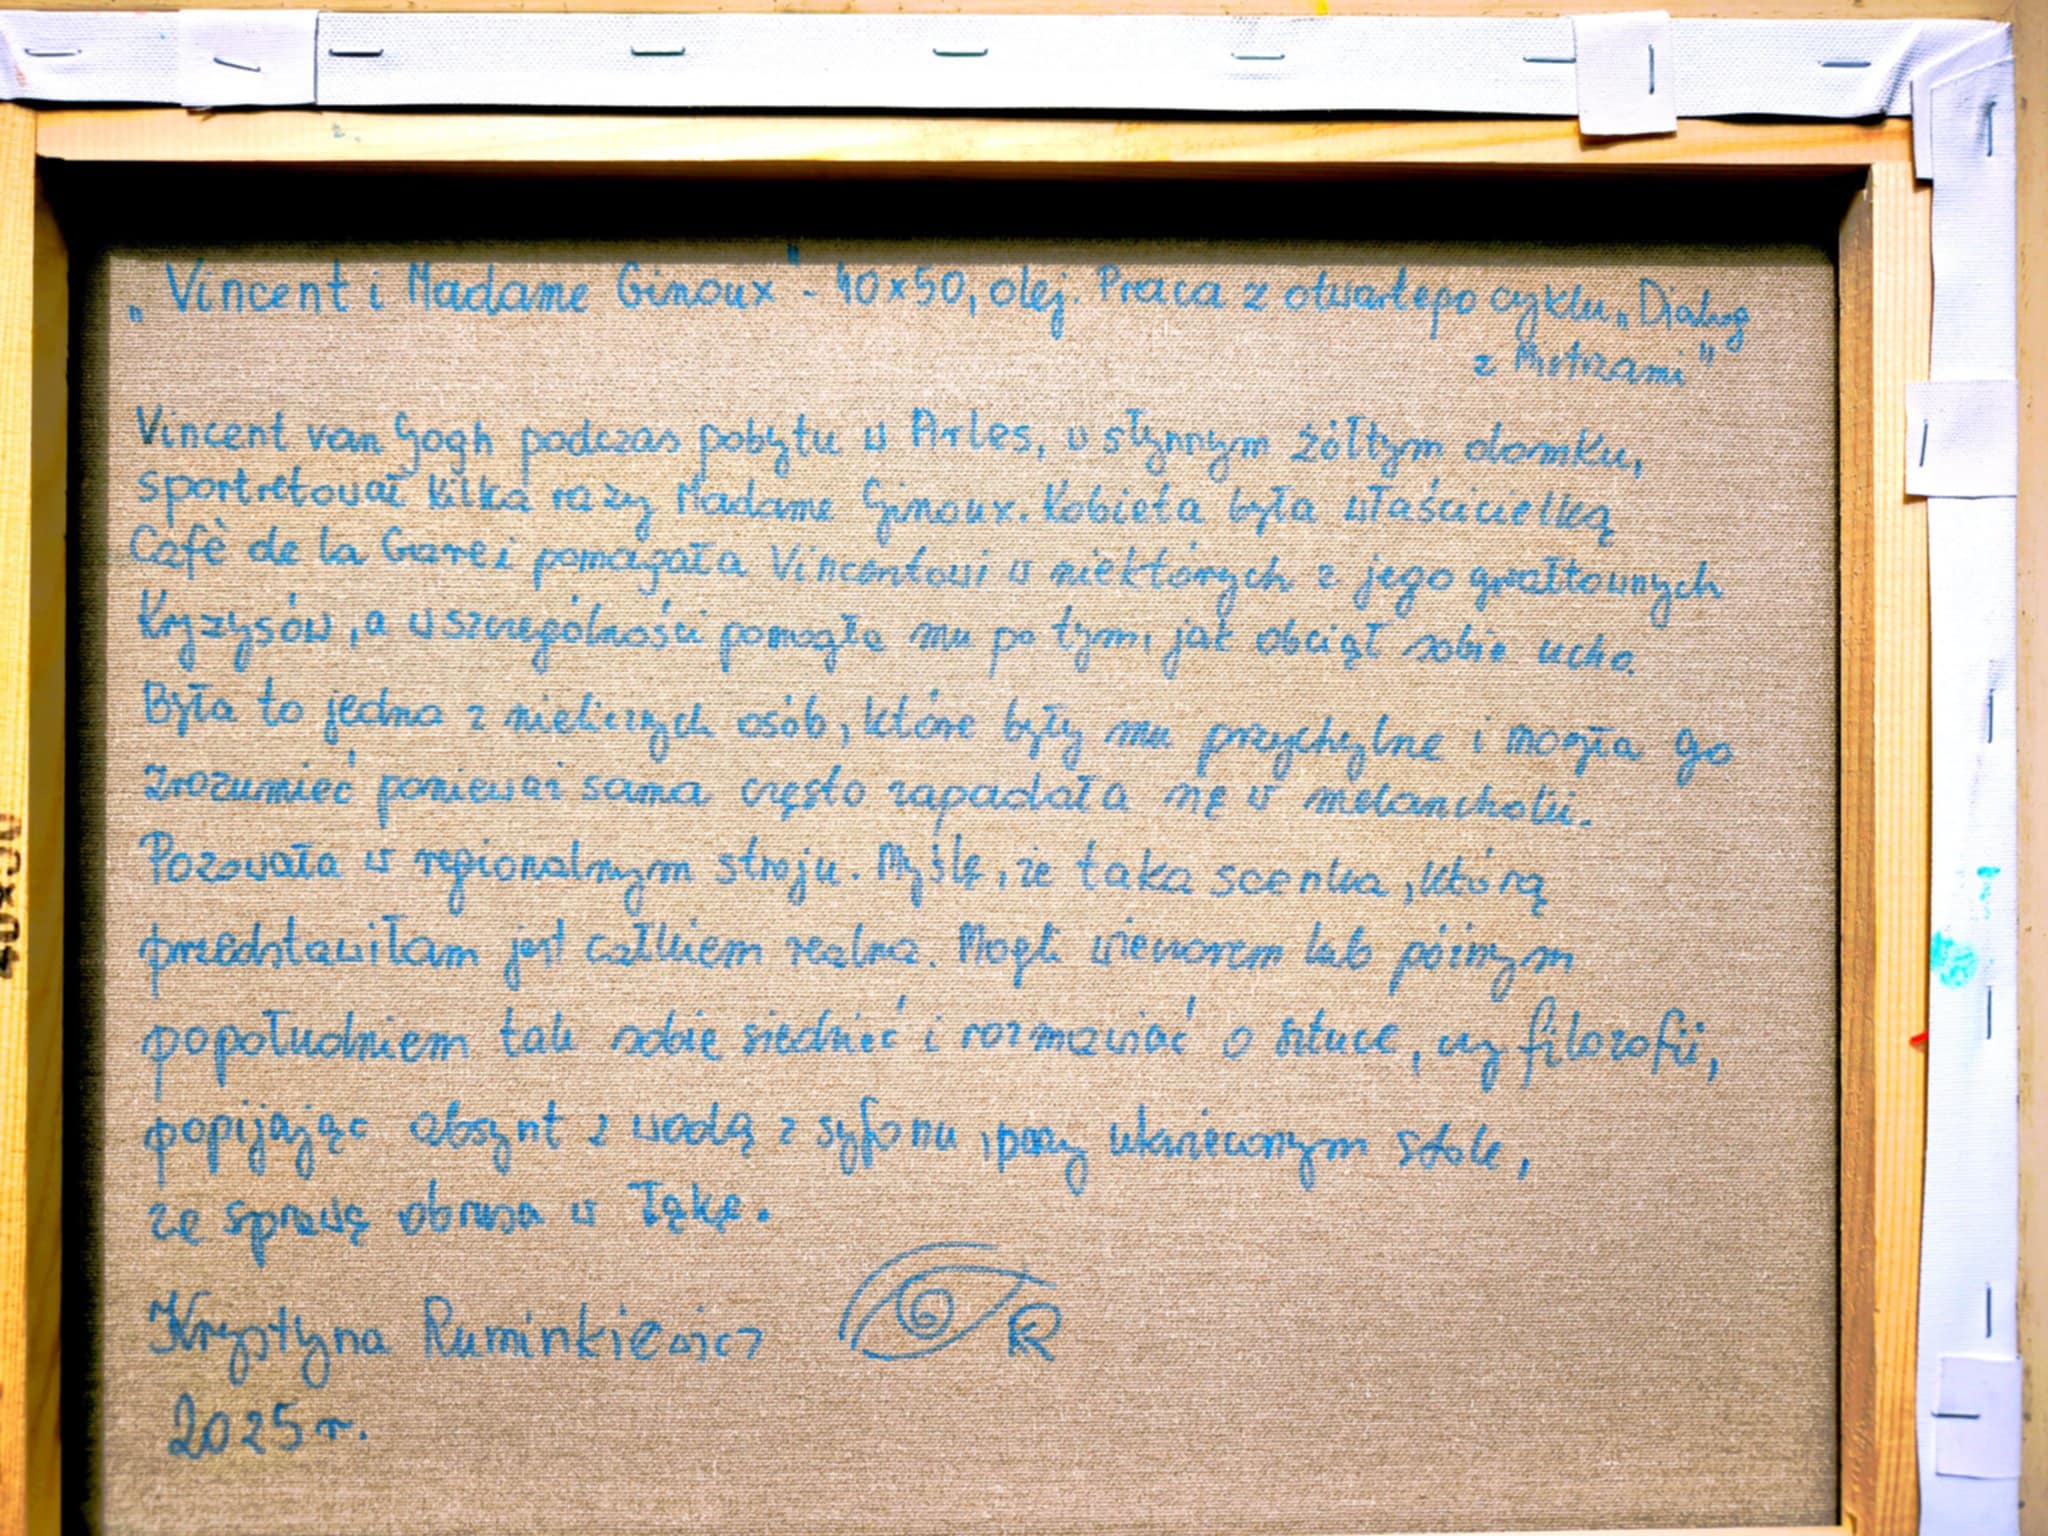 „Vincent i Madame Ginoux" - 40x50, olej. Praca z otwartego cyklu „Dialog
z Mistrzami"
Vincent van Gogh podczas pobytu w Arles, w słynnym żółtym domku,
sportretował kilka razy Madame Ginoux. Kobieta była właścicielką
Cafè de la Gare i pomagała Vincentowi w niektórych z jego gwałtownych
kryzysów, a w szczególności pomogła mu po tym, jak obciął sobie ucho.
Była to jedna z nielicznych osób, które były mu przychylne i mogła go
zrozumieć ponieważ sama często zapadała się w melancholii.
Pozowała w regionalnym stroju. Myślę, że taka scenka, którą
przedstawiłam jest całkiem realna. Mogli wieczorem lub póżnym
popołudniem tak sobie siedzieć i rozmawiać o sztuce, czy filozofii,
popijając absynt z wodą z syfonu, przy ukwieconym stole,
ze sprawą obrusa w łąkę.
Krystyna Ruminkiewicz
R
2025 r.
40x50